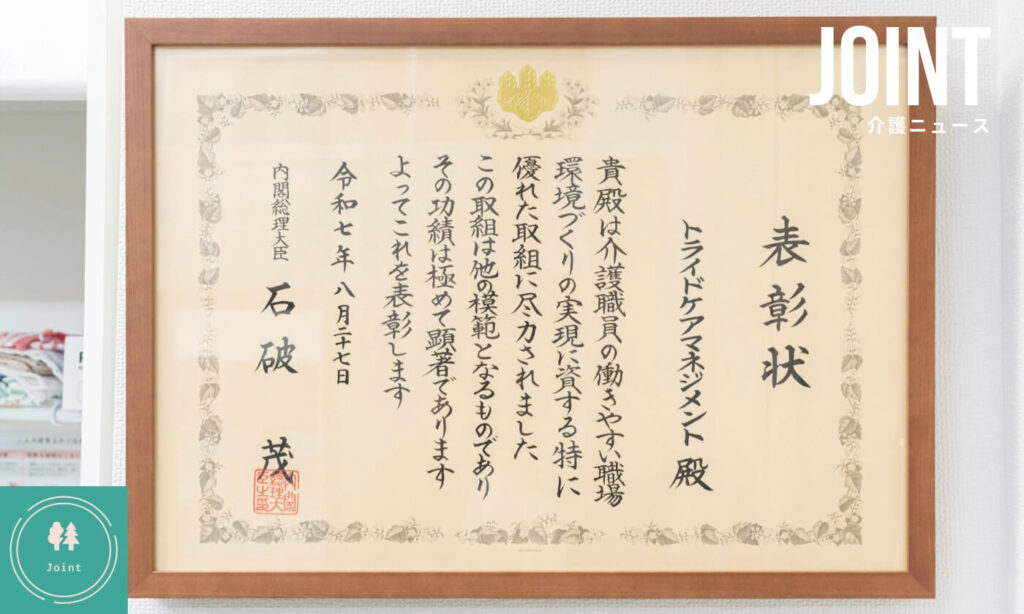 JOINT
介護ニュース
表彰状
トライドケアマネジメント 殿
貴殿は介護職員の働きやすい職場
環境づくりの実現に資する特に
優れた取組に尽力されました
この取組は他の模範となるものであり
その功績は極めて顕著であります
よってこれを表彰します
令和七年八月二十七日
内閣総理大臣 石破 茂
Joint